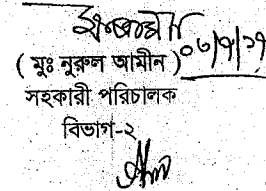 ০৮/৭/১৭
( মুঃ নুরুল আমীন )
সহকারী পরিচালক
বিভাগ-২